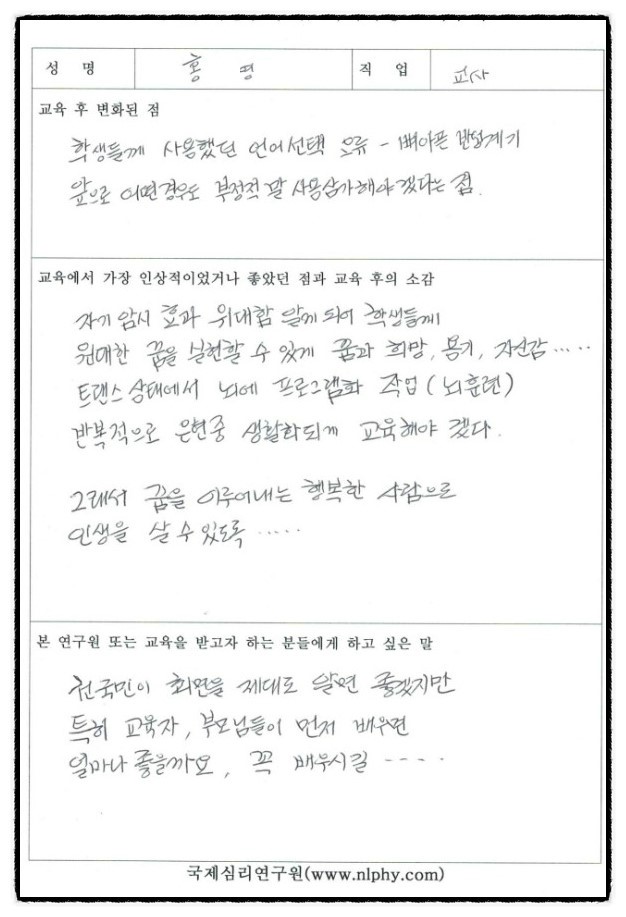 성 명 홍 명 직 업 교사
교육 후 변화된 점
학생들께 사용했던 언어선택 오류 - 뼈아픈 반성계기
앞으로 어떤경우도 부정적 말 사용삼가해야겠다는 점.
교육에서 가장 인상적이었거나 좋았던 점과 교육 후의 소감
자기 암시 효과 위대함 알게 되어 학생들께
원대한 꿈을 실현할 수 있게 꿈과 희망, 용기, 자신감.....
트랜스 상태에서 뇌에 프로그램화 작업(뇌훈련)
반복적으로 은현중 생활화되게 교육해야 겠다.
그래서 꿈을 이루어내는 행복한 사람으로
인생을 살 수 있도록 .....
본 연구원 또는 교육을 받고자 하는 분들에게 하고 싶은 말
전국민이 최면을 제대로 알면 좋겠지만
특히 교육자, 부모님들이 먼저 배우면
얼마나 좋을까요, 꼭 배우시길 ----.
국제심리연구원(www.nlphy.com)